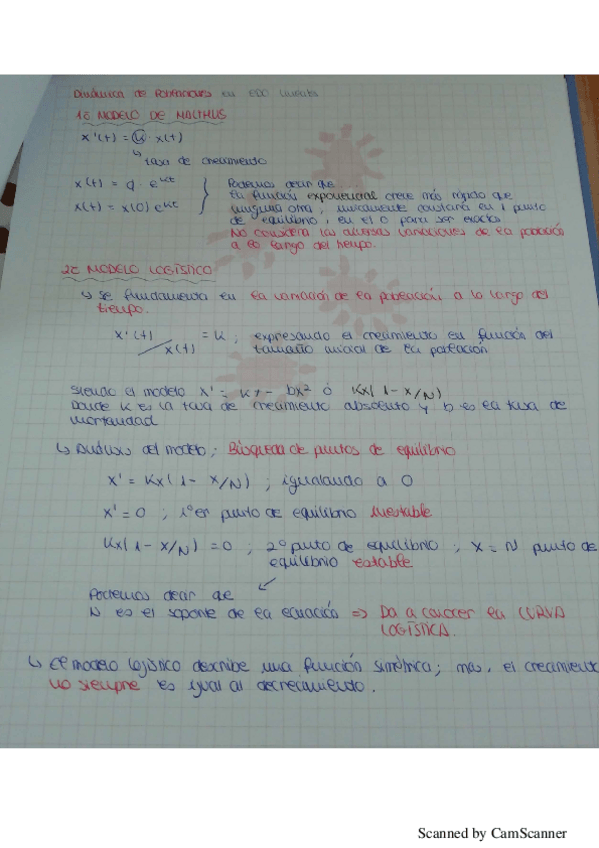 Dinámica de Poblaciones en EDO lineales
1º MODELO DE MALTHUS
x'(t) = k · x(t)
↳ tasa de crecimiento
x(t) = a · e^kt
x(t) = x(0) e^kt
Podemos decir que
la función exponencial crece más rápido que
ninguna otra; únicamente constará en 1 punto
de equilibrio, en el 0 para ser exactos
No considera las diversas variaciones de la población
a lo largo del tiempo.
2º MODELO LOGÍSTICO
↳ Se fundamenta en la variación de la población a lo largo del
tiempo.
x'(t)/x(t) = k ; expresando el crecimiento en función del
tamaño inicial de la población
Siendo el modelo x' = kx - bx² ó kx(1 - x/N)
Donde k es la tasa de crecimiento absoluto y b es la tasa de
mortandad
↳ Análisis del modelo; Búsqueda de puntos de equilibrio
x' = kx(1 - x/N) ; igualando a 0
x' = 0 ; 1º er punto de equilibrio Inestable
kx(1 - x/N) = 0 ; 2º punto de equilibrio ; x = N punto de
equilibrio estable
Podemos decir que
N es el soporte de la ecuación ⇒ Da a conocer la CURVA
LOGÍSTICA.
↳ El modelo logístico describe una función simétrica; mas, el crecimiento
no siempre es igual al decrecimiento.
Scanned by CamScanner